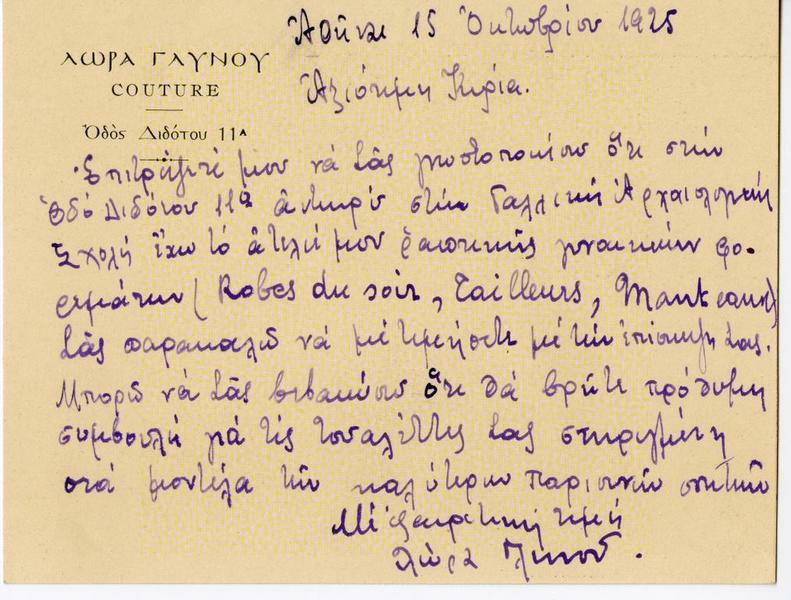 Ἀθῆναι 15 Ὀκτωβρίου 1925
ΛΩΡΑ ΓΛΥΝΟΥ
COUTURE
Ὁδὸς Διδότου 11ᴬ
Ἀξιότιμη Κυρία.
Ἐπιτρέψετέ μου νά Σᾶς γνωστοποιήσω ὅτι στήν
ὁδό Διδότου 11α ἀντικρύ στήν Γαλλική Ἀρχαιολογική
Σχολή ἔχω τό ἀτελιέ μου ραπτικῆς γυναικείων φο-
ρεμάτων (Robes du soir, Tailleurs, Manteaux)
Σᾶς παρακαλῶ νά μέ τιμήσετε μέ τήν ἐπίσκεψή Σας.
Μπορῶ νά Σᾶς βεβαιώσω ὅτι θά βρῆτε πρόθυμη
συμβουλή γιά τίς τουαλέττες Σας στηριγμένη
στά μοντέλα τῶν καλύτερων παρισινῶν σπιτιῶν
Μέ ἐξαιρετική τιμή
Λώρα Γληνοῦ.